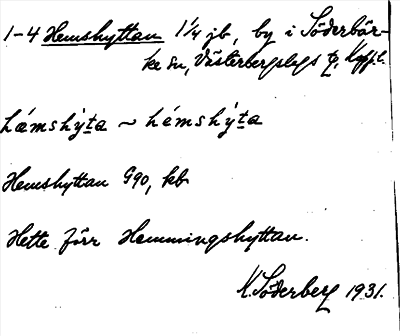 1-4 Hemshyttan 1 1/4 jb, by i Söderbär-
ke sn, Västerbergslags tg. Koppb. l.
hæmshýta ~ hémshýta
Hemshyttan G90, kb
Hette förr Hemmingshyttan.
K. Söderberg 1931.